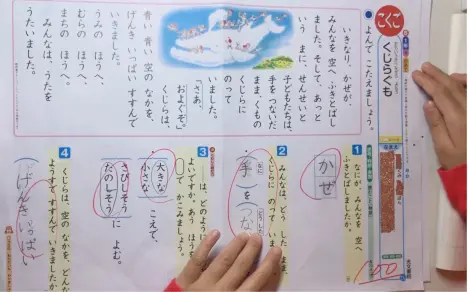 こくご
くじらぐも
よんで こたえましょう。
いきなり、かぜが、
みんなを 空へ ふきとばし
ました。そして、あっと
いう まに、せんせいと
子どもたちは、
手を つないだ
まま、くもの
くじらに
のって
いました。
「さあ、
およぐぞ。」
くじらは、
青い 青い 空の なかを、
げんき いっぱい すすんで
いきました。
うみの ほうへ、
むらの ほうへ、
まちの ほうへ。
みんなは、うたを
うたいました。
1 なにが、みんなを 空へ
ふきとばしましたか。
かぜ
2 みんなは、どう した まま、
くじらに のって いま
手を つな
3 は、どのように
よいですか。あう ほうを
○で かこみましょう。
大きな
小さな
こえで、
さびしそう
たのしそう
に よむ。
4 くじらは、空の なかを、どんな
ようすで すすんで いきましたか。
げんき いっぱい
100